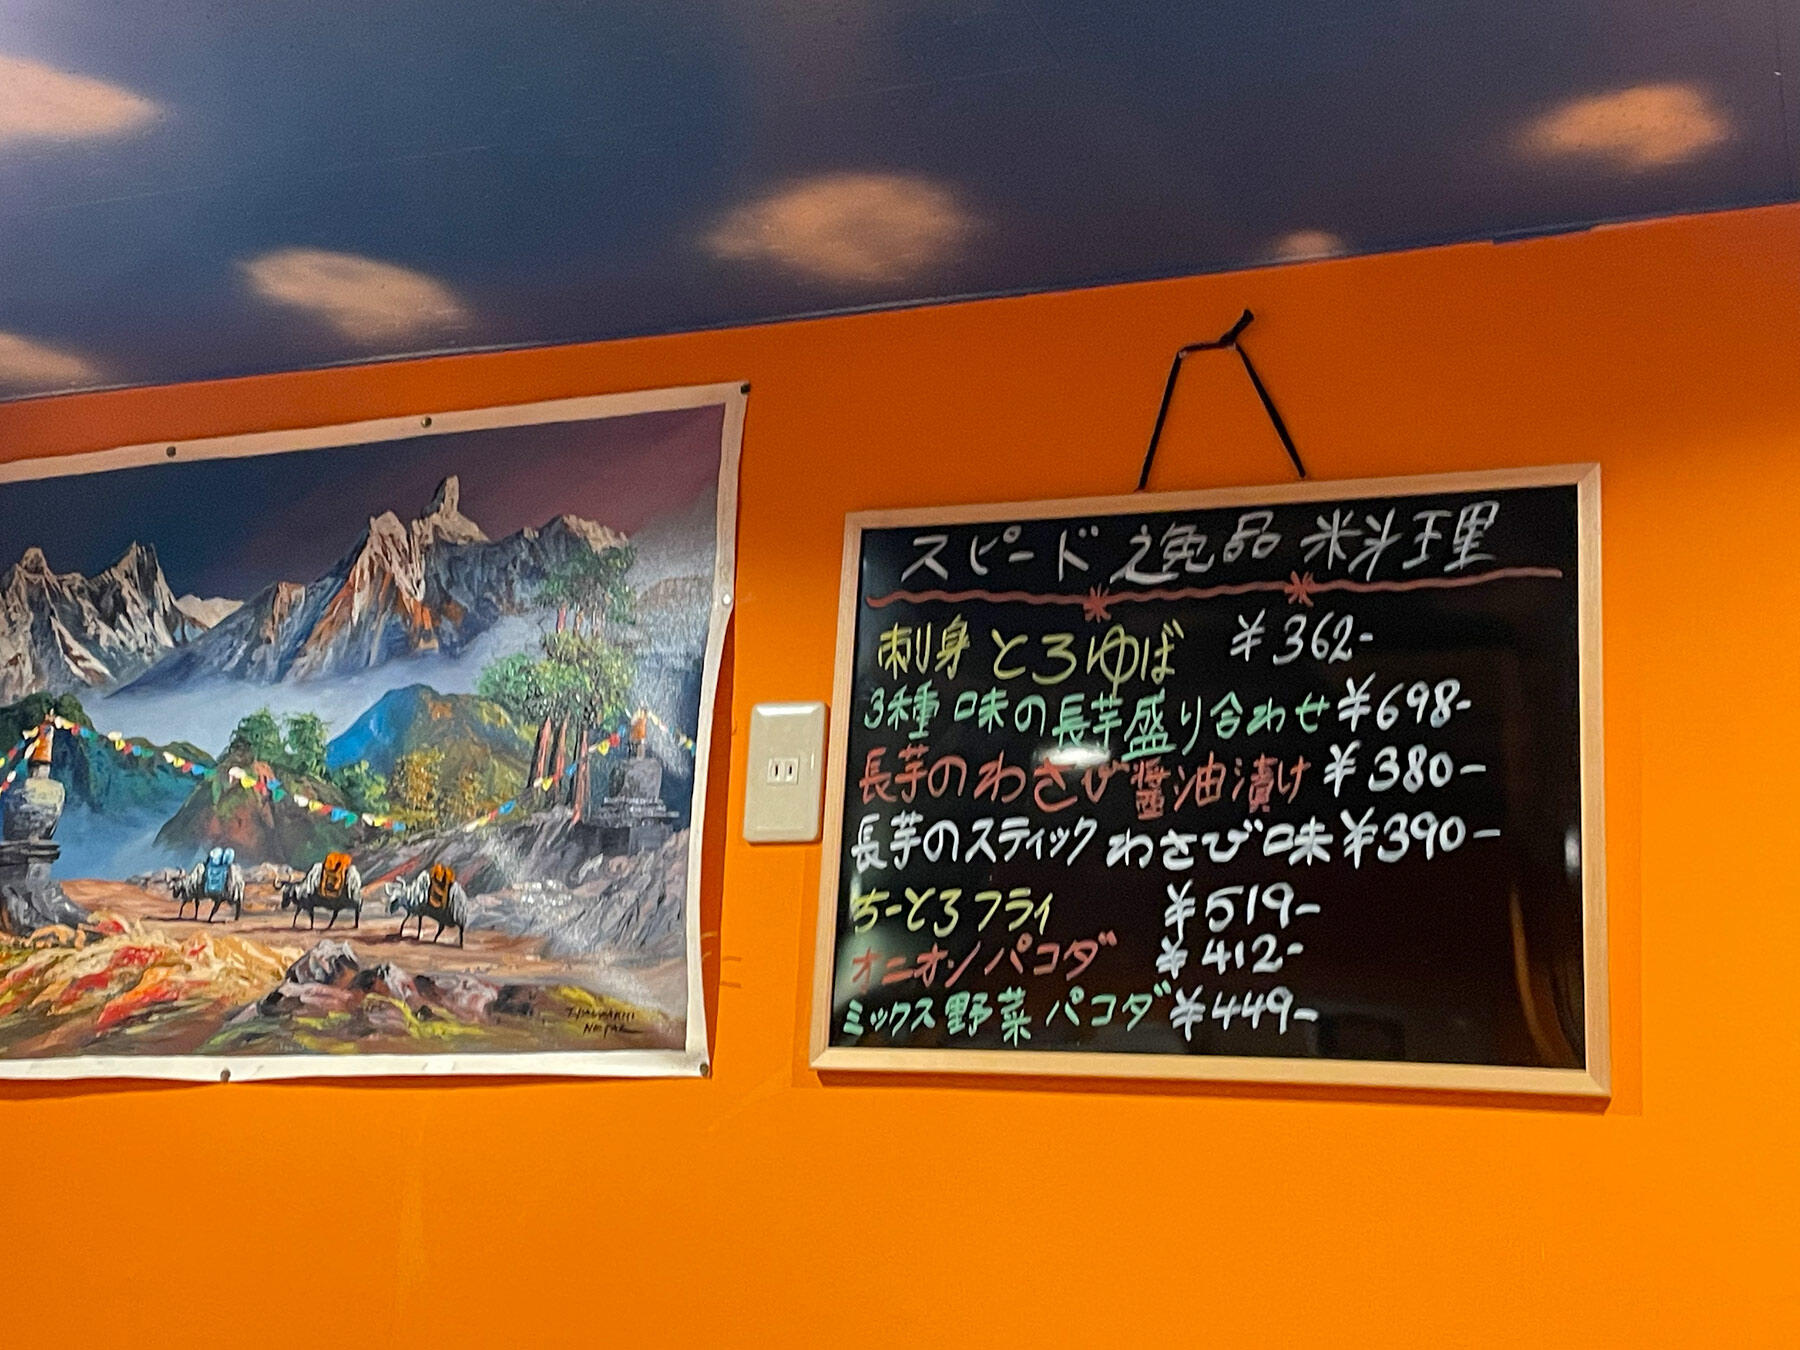 スピード逸品料理
刺身とろゆば ¥362-
3種味の長芋盛り合わせ ¥698-
長芋のわさび醤油漬け ¥380-
長芋のスティックわさび味 ¥390-
ちーとろフライ ¥519-
オニオンパコダ ¥412-
ミックス野菜パコダ ¥449-
NEPAL